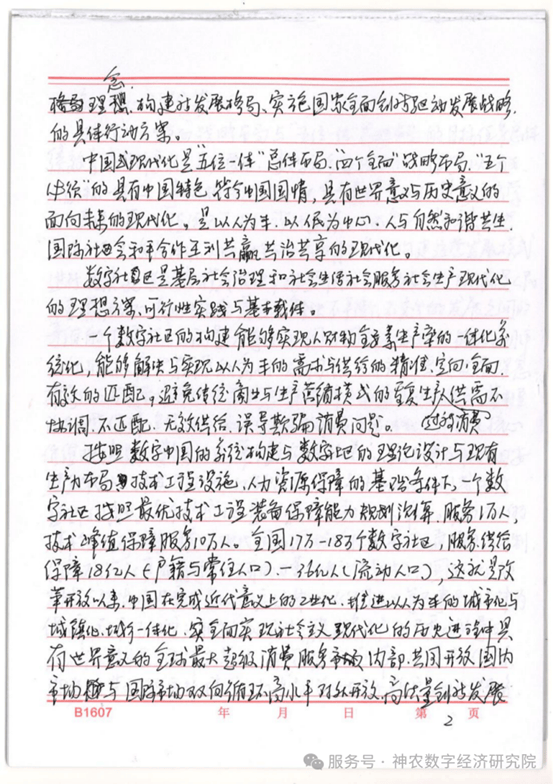 念
格局理想、构建社发展格局、实施国家全面创新驱动发展战略
的具体行动方案。
中国式现代化是“五位一体”总体布局、“四个全面”战略布局、“五个
体统”的具有中国特色、符合中国国情,具有世界意义与历史意义的
面向未来的现代化。是以人为本、以人民为中心、人与自然和谐共生、
国际社会和平合作互利共赢、共治共享的现代化。
数字社区是基层社会治理和社会生活社会服务社会生产现代化
的理想方案、可行性实践与基本载体。
一个数字社区的构建能够实现人财物全要素生产率的一体化系
统化,能够解决与实现以人为本的需求与供给的精准、定向、全面、
有效的匹配。避免传统商业与生产营销模式的重复生产、供需不
协调、不匹配、无效供给、误导欺骗消费问题。过时消费
按照数字中国的系统构建与数字社区的理论设计与现有
生产力布局与技术工程设施、人力资源保障的基础条件下,一个数
字社区按照最优技术工程装备保障能力规划测算,服务1万人,
技术峰值保障服务10万人。全国17万-18万个数字社区,服务供给
保障18亿人(户籍与常住人口)、(流动人口),这就是改
革开放以来,中国在完成近代意义上的工业化、推进以人为本的城市化与
城镇化、城乡一体化、实全面实现社会主义现代化的历史进程中具
有世界意义的全球最大超级消费服务市场内部、共同开放国内
市场与国际市场双向循环高水平对外开放、高质量创新发展
B1607 年 月 日 第 2 页
服务号 · 神农数字经济研究院